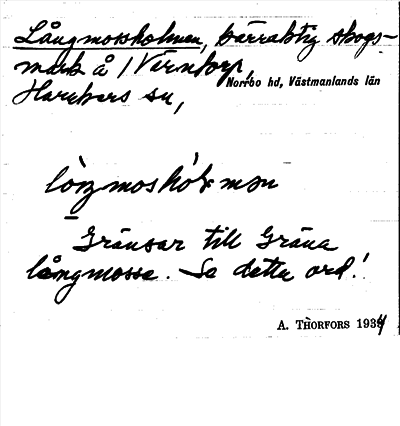 Långmossholmen, barraktig skogs-
mark å 1 Värntorp,
Norrbo hd, Västmanlands län
Harebers sn,
Gränsar till Gräna
långmosse. Se detta ord!
A. THORFORS 1934